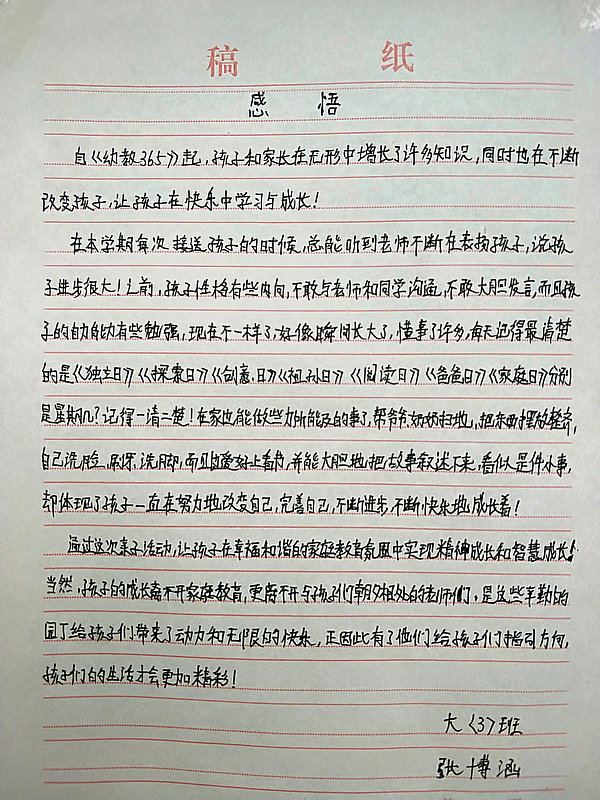 稿 纸
感 悟
自《幼教365》起,孩子和家长在无形中增长了许多知识,同时也在不断
改变孩子,让孩子在快乐中学习与成长!
在本学期每次接送孩子的时候,总能听到老师不断在表扬孩子,说孩
子进步很大!之前,孩子性格有些内向,不敢与老师和同学沟通,不敢大胆发言,而且孩
子的自能有些勉强,现在不一样了,好像瞬间长大了,懂事了许多,每天记得最清楚
的是《独立日》《探索日》《创意日》《祖孙日》《阅读日》《爸爸日》《家庭日》分别
是星期几?记得一清二楚!在家也能做些力所能及的事了,帮爷爷奶奶扫地,把东西摆放整齐,
自己洗脸、刷牙、洗脚,而且自爱好上看书,并能大胆地把故事叙述下来,看似是件小事,
却体现了孩子一直在努力地改变自己,完善自己,不断进步,不断快乐地成长着!
通过这次亲子活动,让孩子在幸福和谐的家庭教育氛围中实现精神成长和智慧成长。
当然,孩子的成长离不开家庭教育,更离不开与孩子们朝夕相处的老师们,是这些辛勤的
园丁给孩子们带来了动力和无限的快乐,正因此有了他们给孩子们指引方向,
孩子们的生活才会更加精彩!
大〈3〉班
张博涵